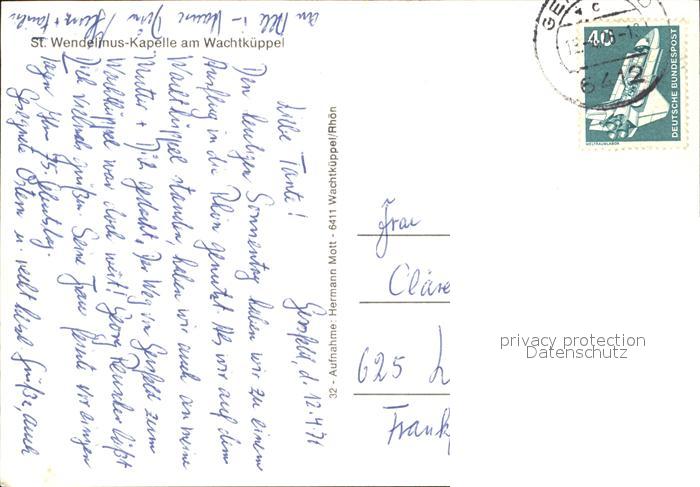 St. Wendelinus-Kapelle am Wachtküppel
Gersfeld, d. 12.4.76
Liebe Tante!
Den heutigen Sonnentag haben wir zu einem
Ausflug in die Rhön genutzt. Als wir auf dem
Wachtküppel standen, haben wir auch an meine
Mutter + Dich gedacht. Der Weg von Gersfeld zum
Wachtküppel war doch weit! Georg läßt
Dich vielmals grüßen. Seine Frau feierte vor einigen
Tagen ihren 75. Geburtstag.
Gesegnete Ostern u. recht herzl. Grüße, auch
an
32 - Aufnahme: Hermann Mott - 6411 Wachtküppel/Rhön
40
DEUTSCHE BUNDESPOST
WELTRAUMLABOR
6412
Frau
Cläre
625 L
Frank
privacy protection
Datenschutz